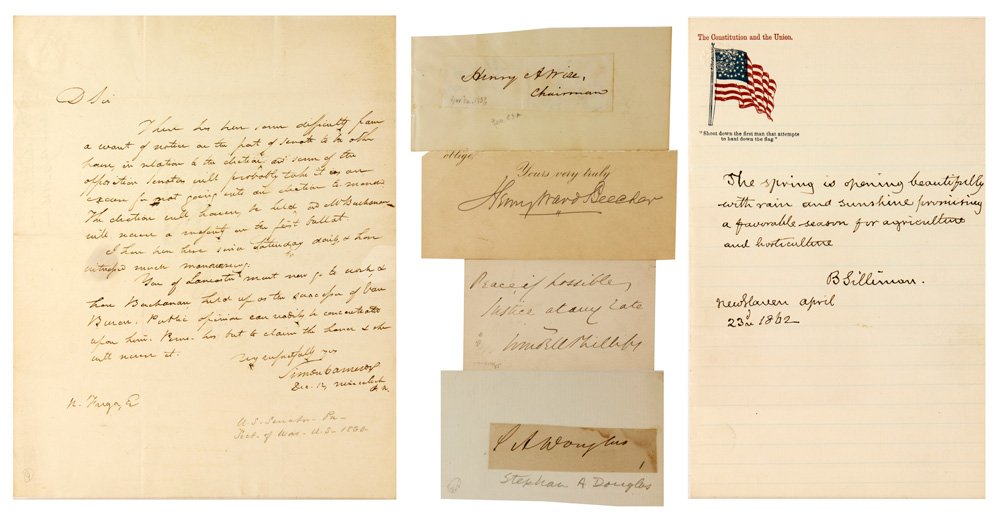 D Sir
There has been some difficulty from
a want of notice on the part of Senate to the other
house, in relation to the election, and some of the
opposition senators will probably take it as an
excuse for not going into an election to morrow
The election will however be held and Mr Buchanan
will receive a majority on the first ballot.
I have been here since Saturday daily & have
witnessed much manœuvring.
You of Lancaster must now go to work, &
have Buchanan held up as the successor of Van
Buren. Public opinion can readily be concentrated
upon him. Penn. has but to claim the honor & she
will receive it.
Very respectfully yrs
Simon Cameron
Dec. 
N.
U.S. Senator - Pa -
Sect. of War - U.S - 1860
Henry A Wise,
Chairman
Gov. Va.
Gen CSA
oblige,
Yours very truly
Henry Ward Beecher
Peace, if possible,
Justice at any rate
Wendell Phillips
S A Douglas
Stephan A Douglas
The Constitution and the Union.
"Shoot down the first man that attempts
to haul down the flag"
The spring is opening beautifully
with rain and sunshine promising
a favorable season for agriculture
and horticulture
B Silliman.
New Haven april
23d 1862